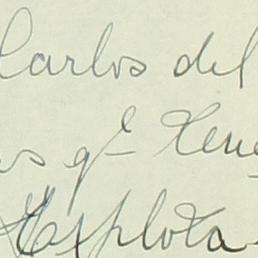 Carlos del
us qe Tene
Explota